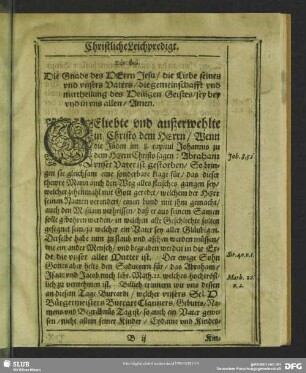 Christliche Leichpredigt.
Die Gnade des HErrn Jesu / die Liebe seines
vnd vnsers Vaters / die gemeinschafft vnd
mittheilung des Heiligen Geistes / sey bey
vnd in vns allen / Amen.
GEliebte vnd ausserwehlte
in Christo dem Herrn / Wenn
die Jüden im 8. capitul Johannis zu
dem Herrn Christo sagen : Abraham
vnser Vater ist gestorben / So brin-
gen sie gleichsam eine sonderbare klage für / das dieser
thewre Mann auch den Weg alles fleisches gangen sey /
welcher mit Gott geredet / welchem der Herr
seinen Namen verendert / einen bund mit ihm gemacht /
auch den Messiam verheissen / das er aus seinem Samen
solte geboren werden / in welchem alle Geschlechte solten
gesegnet sein / ja welcher ein Vater sey aller Gläubigen.
Derselbe habe nun zu staub vnd aschen werden müssen /
wie ein ander Mensch / vnd begraben worden in die Er-
de / die vnser aller Mutter ist. Der ewige Sohn
Gottes aber hebts den Saduceern für / das Abraham /
Isaac vnd Jacob noch lebe / Math. 22. welches hochtröst-
lich zu vernehmen ist. Billich erinnern wir vns dessen
an diesem Tage Burcardi / welcher vnsers Sel. D.
Bürgermeisters Burcart Clamers, Geburts / Na-
mens vnd Begräbnis Tag ist / so auch ein Vater gewe-
sen / nicht allein seiner Kinder / Eydame vnd Kindes-
Joh. 8. 52.
Sir. 40. v. 1.
B ij
Kin-
SLUB